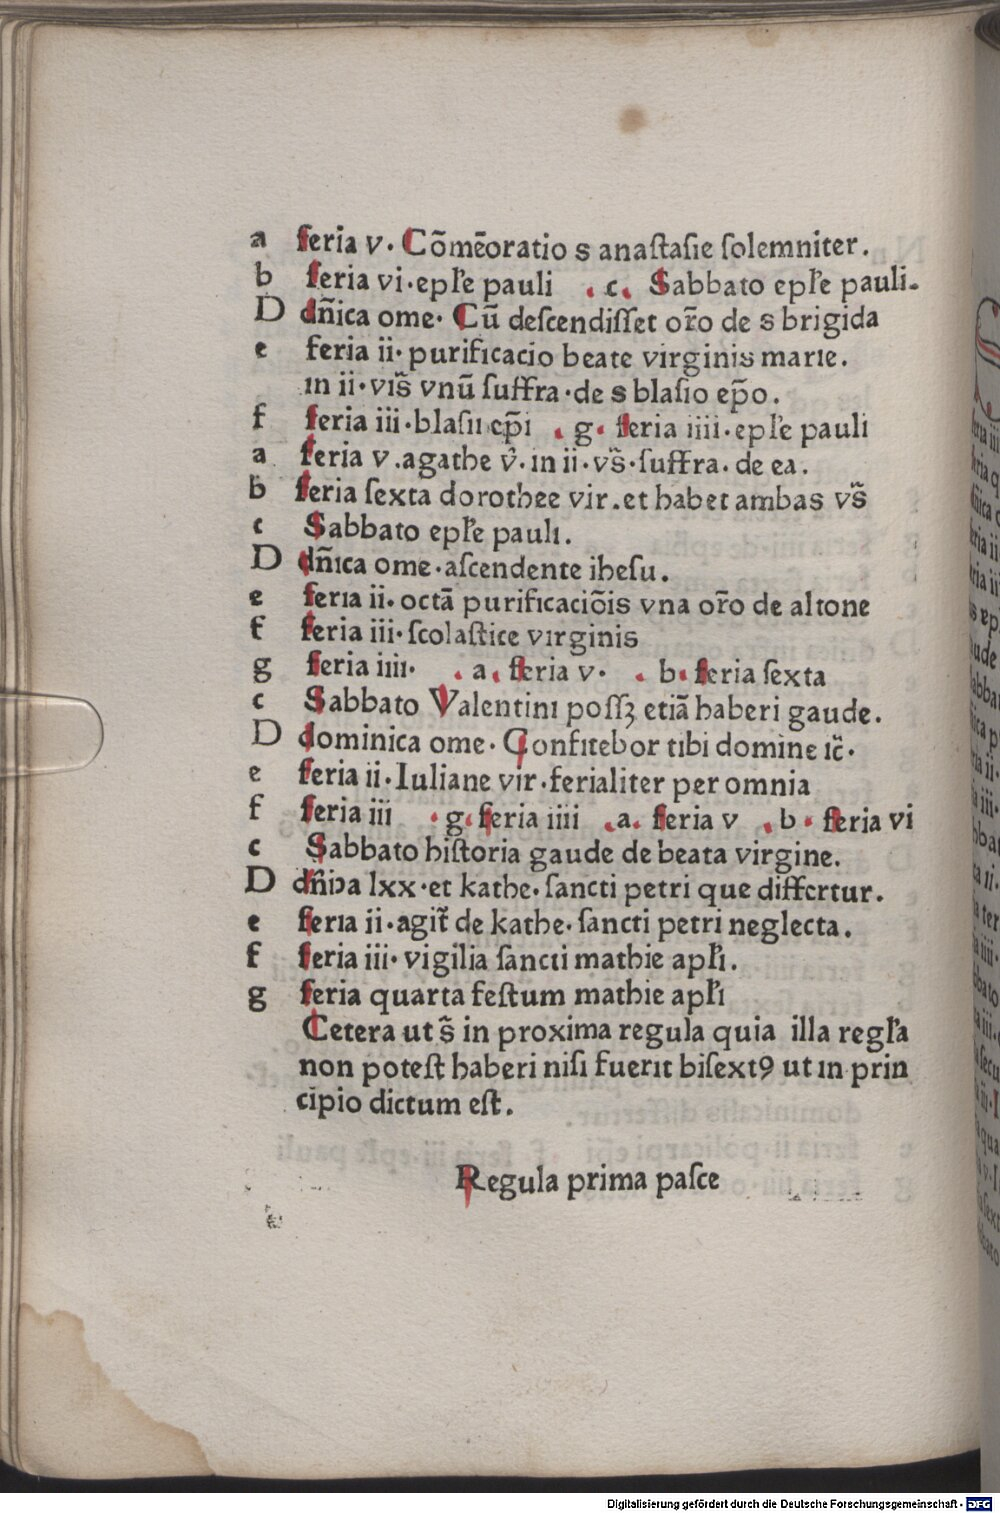 a feria v. Cōmēoratio s anaſtaſie ſolemniter.
b feria vi. epl'e pauli . c. Sabbato epl'e pauli.
D dn̄ica ome. Cū deſcendiſſet or̄o de s brigida
e feria ii. purificacio beate virginis marie.
in ii. vis̄ vnū ſuffra. de s blaſio ep̄o.
f feria iii. blaſii ep̄i . g. feria iiii. epl'e pauli
a feria v. agathe v̄. in ii. vs̄. ſuffra. de ea.
b feria ſexta dorothee vir. et habet ambas vs̄
c Sabbato epl'e pauli.
D dn̄ica ome. aſcendente iheſu.
e feria ii. octā purificaciōis vna or̄o de altone
f feria iii. ſcolaſtice virginis
g feria iiii. . a. feria v. . b. feria ſexta
c Sabbato Valentini poſſꝫ etiā haberi gaude.
D dominica ome. Confitebor tibi domine ic̄.
e feria ii. Iuliane vir. ferialiter per omnia
f feria iii . g. feria iiii . a. feria v . b. feria vi
c Sabbato hiſtoria gaude de beata virgine.
D dn̄ica lxx. et kathe. ſancti petri que differtur.
e feria ii. agit̄ de kathe. ſancti petri neglecta.
f feria iii. vigilia ſancti mathie apl'i.
g feria quarta feſtum mathie apl'i
Cetera ut s̄ in proxima regula quia illa regl'a
non poteſt haberi niſi fuerit biſextꝰ ut in prin
cipio dictum eſt.
Regula prima paſce
Digitalisierung gefördert durch die Deutsche Forschungsgemeinschaft - DFG